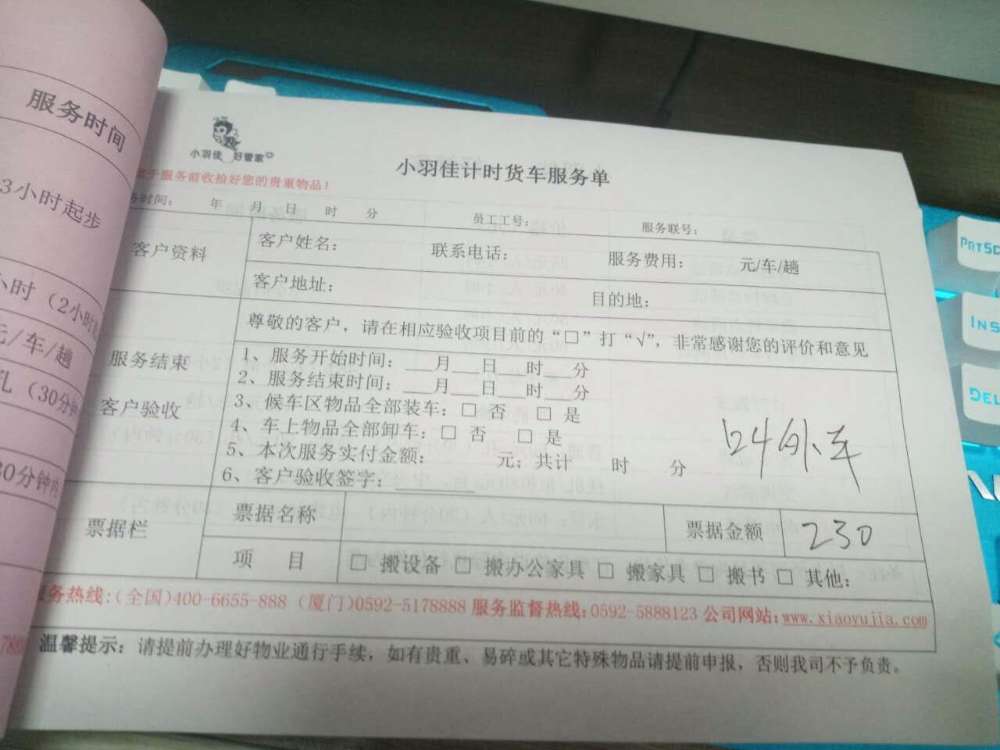 服务时间
3小时起步
小时（2小时
元/车/趟
孔（30分钟
30分钟内
小羽佳 好管家
于服务前收拾好您的贵重物品！
小羽佳计时货车服务单
务时间： 年 月 日 时 分 员工工号： 服务联号：
客户资料
客户姓名： 联系电话： 服务费用： 元/车/趟
客户地址： 目的地：
服务结束
客户验收
尊敬的客户，请在相应验收项目前的“□”打“√”，非常感谢您的评价和意见
1、服务开始时间：___月___日___时___分
2、服务结束时间：___月___日___时___分
3、候车区物品全部装车：□ 否 □ 是
4、车上物品全部卸车：□ 否 □ 是
5、本次服务实付金额： 元；共计 时 分
6、客户验收签字：________
外车
票据栏
票据名称 票据金额 230
项 目 □ 搬设备 □ 搬办公家具 □ 搬家具 □ 搬书 □ 其他：
服务热线：(全国)400-6655-888 (厦门)0592-5178888 服务监督热线：0592-5888123 公司网站：www.xiaoyujia.com
温馨提示：请提前办理好物业通行手续，如有贵重、易碎或其它特殊物品请提前申报，否则我司不予负责。
PRTSC
INS
DEL